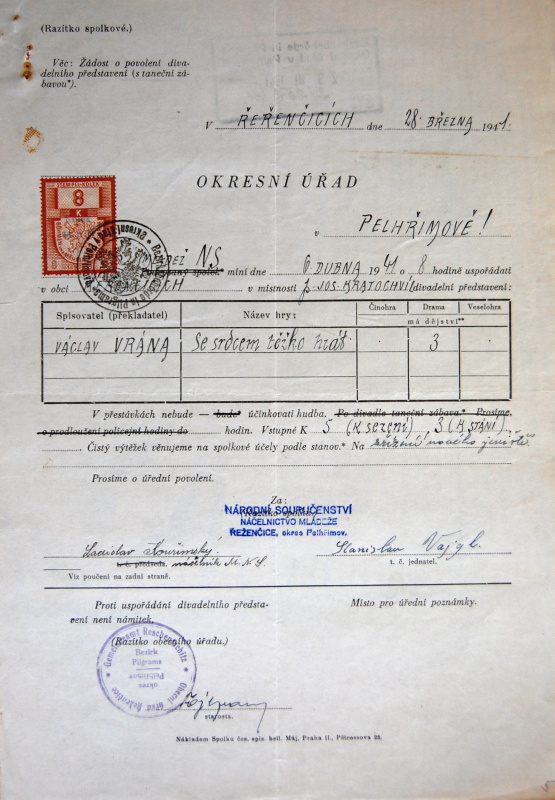 (Razítko spolkové.)
Věc: Žádost o povolení diva-
delního představení (s taneční zá-
bavou*).
V ŘEŘENČICÍCH dne 28 BŘEZNA 1941.
OKRESNÍ ÚŘAD
v PELHŘIMOVĚ!
STEMPEL-KOLEK
8
K
NS míní dne 6 DUBNA 1941 o 8 hodině uspořádati
v obci v místnosti p. JOS. KRATOCHVÍL divadelní představení:
Spisovatel (překladatel) Název hry: Činohra Drama Veselohra
má dějství**
VÁCLAV VRÁNA Se srdcem těžko hrát. 3
V přestávkách nebude — bude* účinkovati hudba. Po divadle taneční zábava.* Prosíme,
o prodloužení policejní hodiny do hodin. Vstupné K 5 (K sezení) 3 (K STÁNÍ)
Čistý výtěžek věnujeme na spolkové účely podle stanov.* Na zřízení nového jeviště
Prosíme o úřední povolení.
Za:
(Razítko spolku)
NÁRODNÍ SOURUČENSTVÍ
NÁČELNICTVO MLÁDEŽE
ŘEŽENČICE, okres Pelhřimov.
Ladislav Kouřimský Stanislav Vajgl.
t. č. předseda. náčelník M. N. S. t. č. jednatel.
Viz poučení na zadní straně.
Proti uspořádání divadelního předsta-
vení není námitek.
Místo pro úřední poznámky.
(Razítko obecního úřadu.)
Gemeindeamt
Bezirk
Pilgrams
okres
Pelhřimov
Obecní úřad
starosta.
Nákladem Spolku čes. spis. bell. Máj, Praha II., Pštrossova 23.